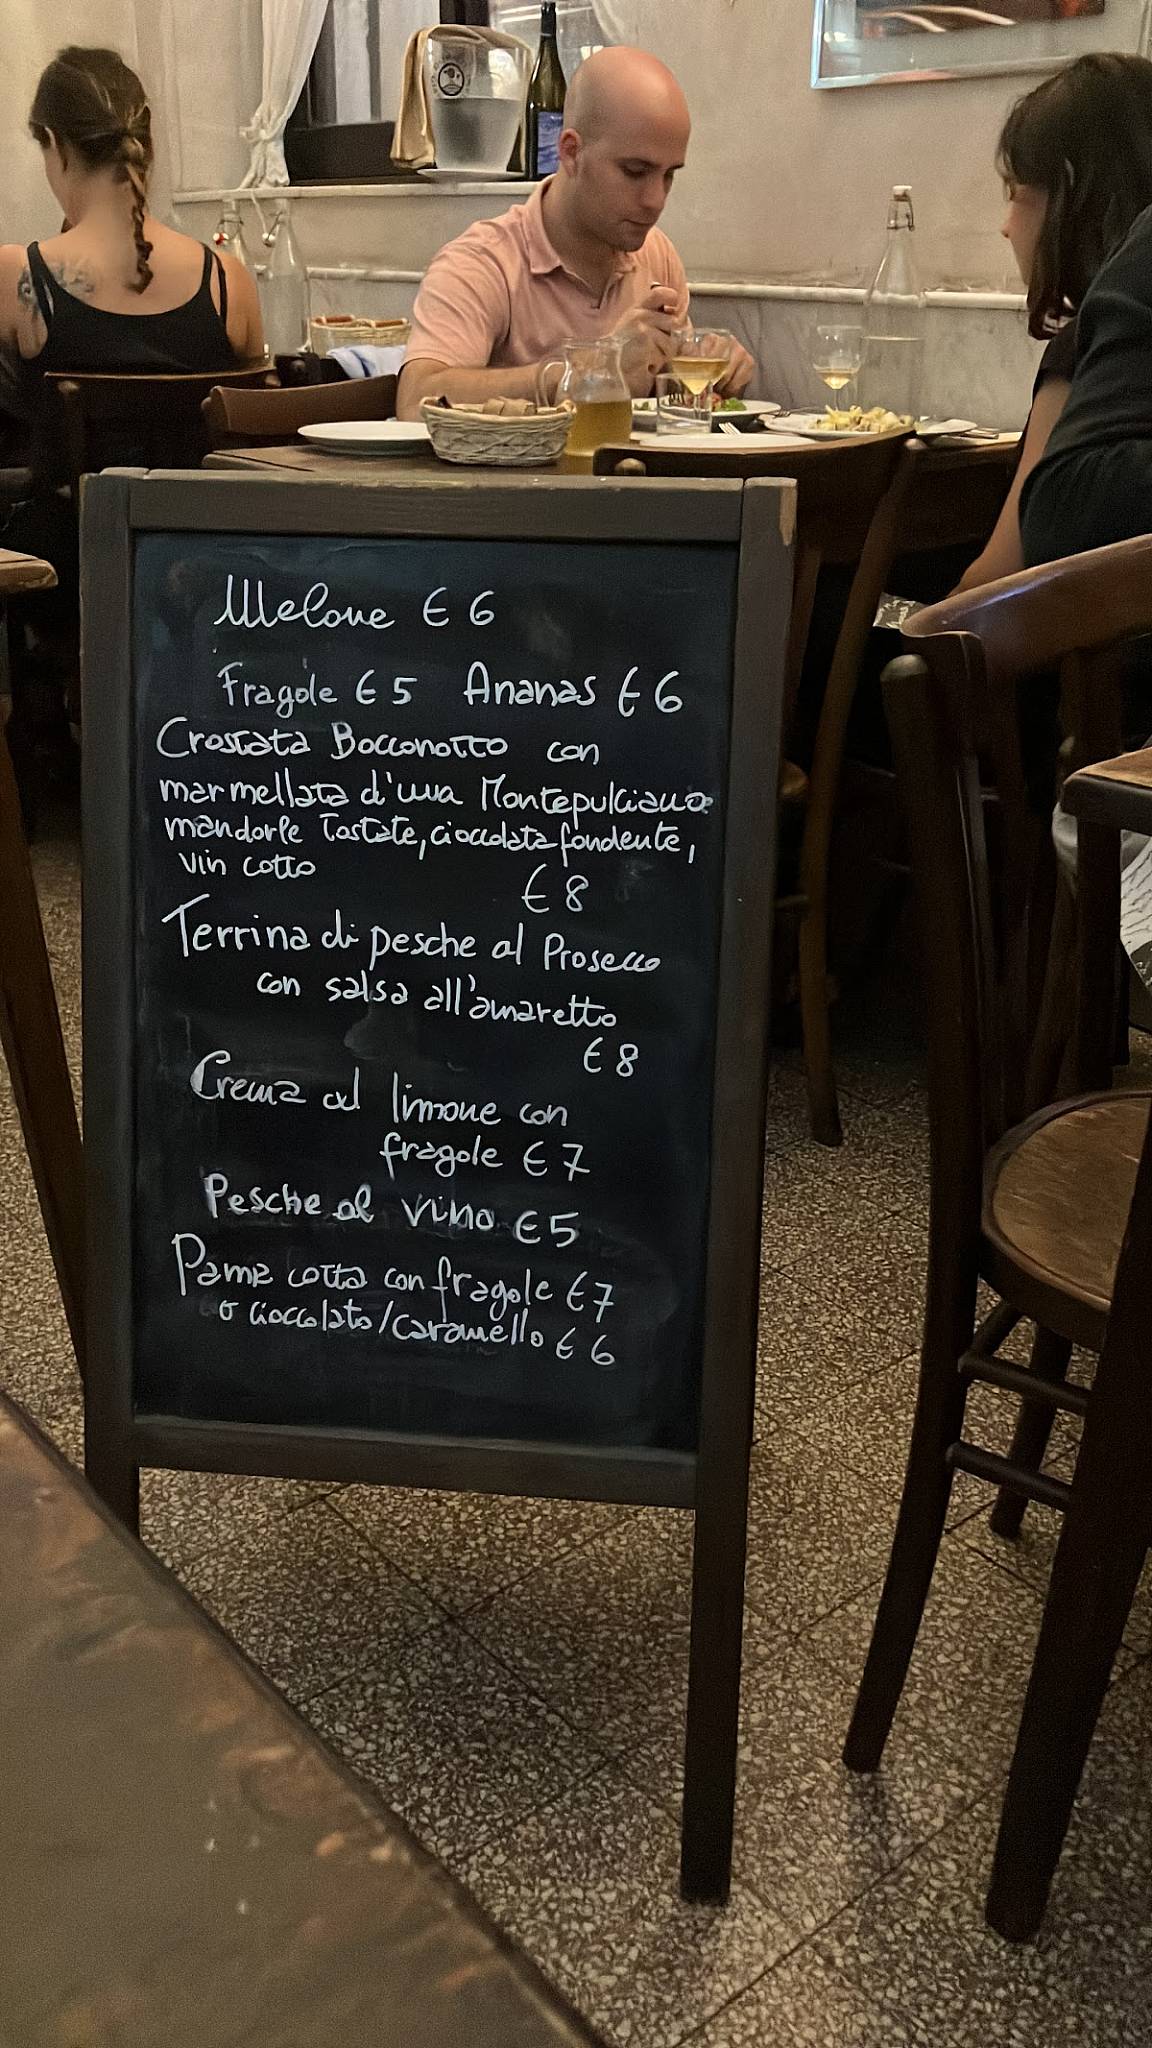 Melone € 6
Fragole € 5 Ananas € 6
Crostata Bocconotto con
marmellata d'uva Montepulciano
mandorle tostate, cioccolata fondente,
vin cotto
€ 8
Terrina di pesche al Prosecco
con salsa all'amaretto
€ 8
Crema al limone con
fragole € 7
Pesche al vino € 5
Panna cotta con fragole € 7
o cioccolato/caramello € 6